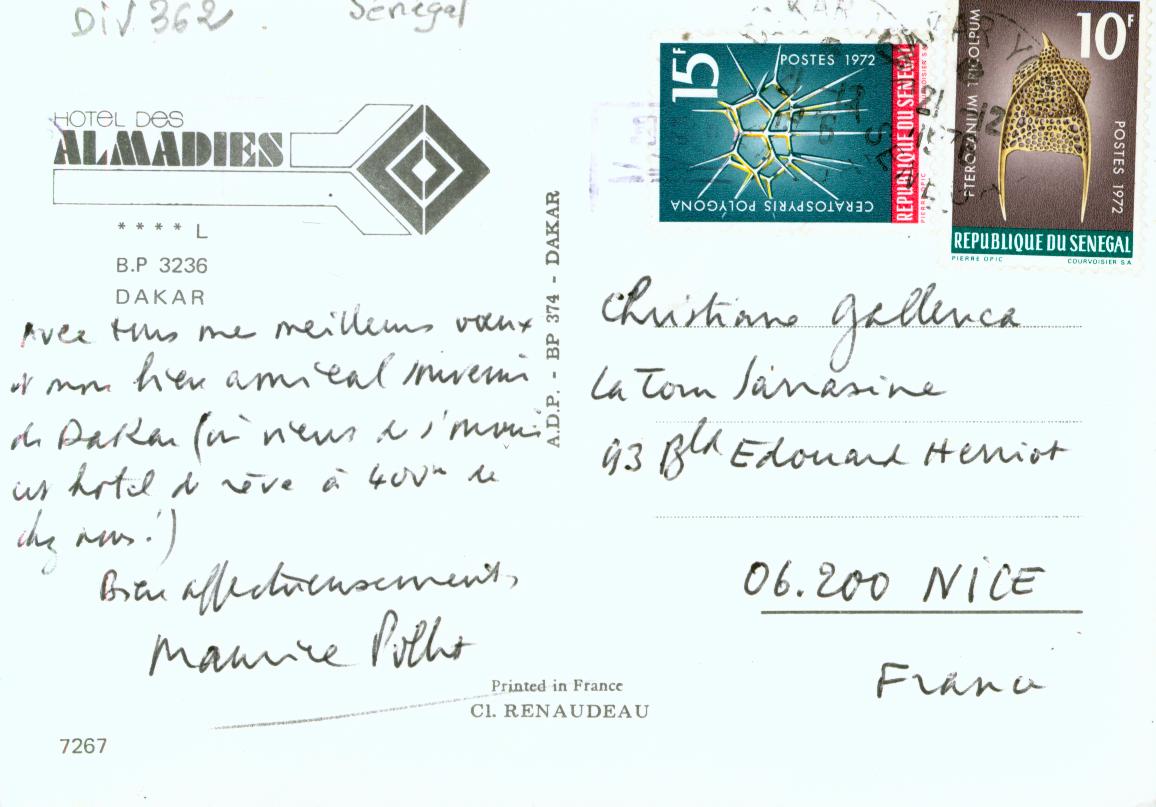 Div 362 Sénégal
HOTEL DES
ALMADIES
* * * * L
B.P 3236
DAKAR
Avec tous mes meilleurs vœux
et mon bien amical souvenir
de Dakar (où vient de s'ouvrir
cet hotel de rêve à 400m de
chez nous!)
Bien affectueusement,
Maurice
Printed in France
Cl. RENAUDEAU
7267
A.D.P. - BP 374 - DAKAR
15F
POSTES 1972
CERATOSPYRIS POLYGONA
REPUBLIQUE DU SENEGAL
10F
PTEROCANIUM TRICOLPUM
POSTES 1972
REPUBLIQUE DU SENEGAL
PIERRE OPIC COURVOISIER S A
Christiane Gallenca
La Tour Sarrasine
93 Bld Edouard Herriot
06.200 NICE
France